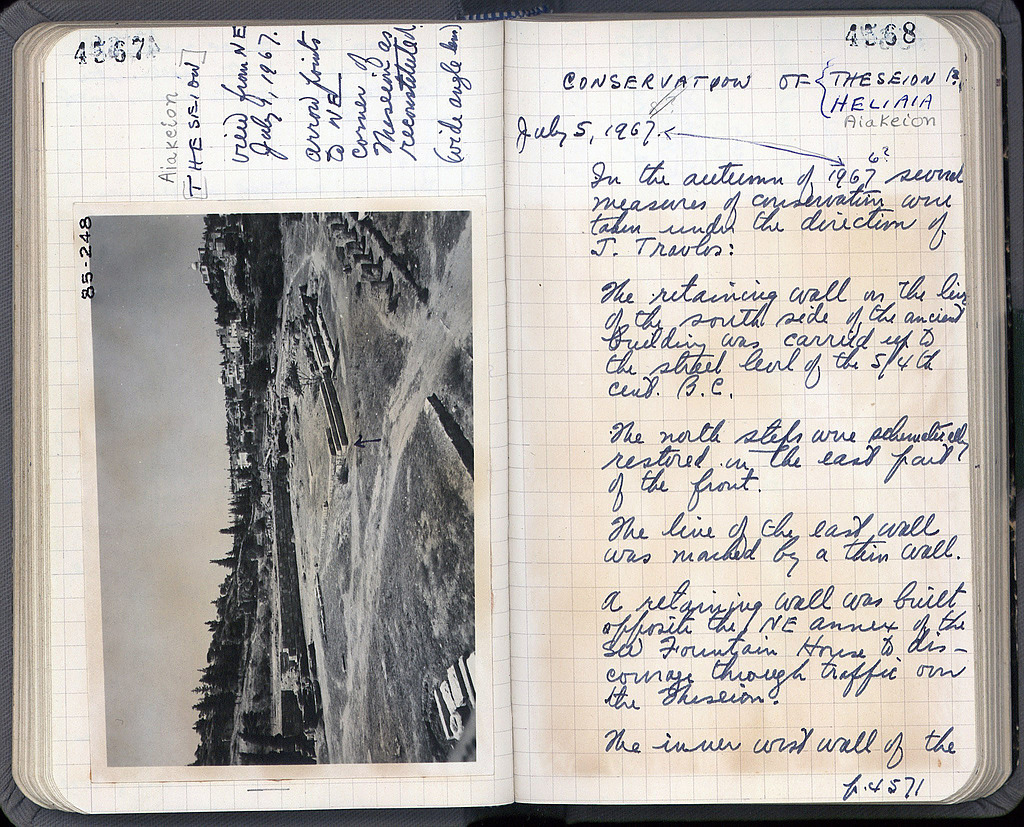 4567
Aiakeion
[THESEION]
view from NE
July 9, 1967.
arrow points
to NE
corner of
Theseion as
reconstituted.
(wide angle lens)
85-248
4568
CONSERVATION OF { THESEION (?)
HELIAIA
Aiakeion
July 5, 1967.
6?
In the autumn of 1967 several
measures of conservation were
taken under the direction of
J. Travlos:
The retaining wall on the line
of the south side of the ancient
building was carried up to
the street level of the 5/4th
cent. B.C.
The north steps were schematically
restored in the east part
of the front.
The line of the east wall
was marked by a thin wall.
A retaining wall was built
opposite the NE annex of the
SW Fountain House to dis-
courage through traffic over
the Theseion.
The inner west wall of the
p. 4571